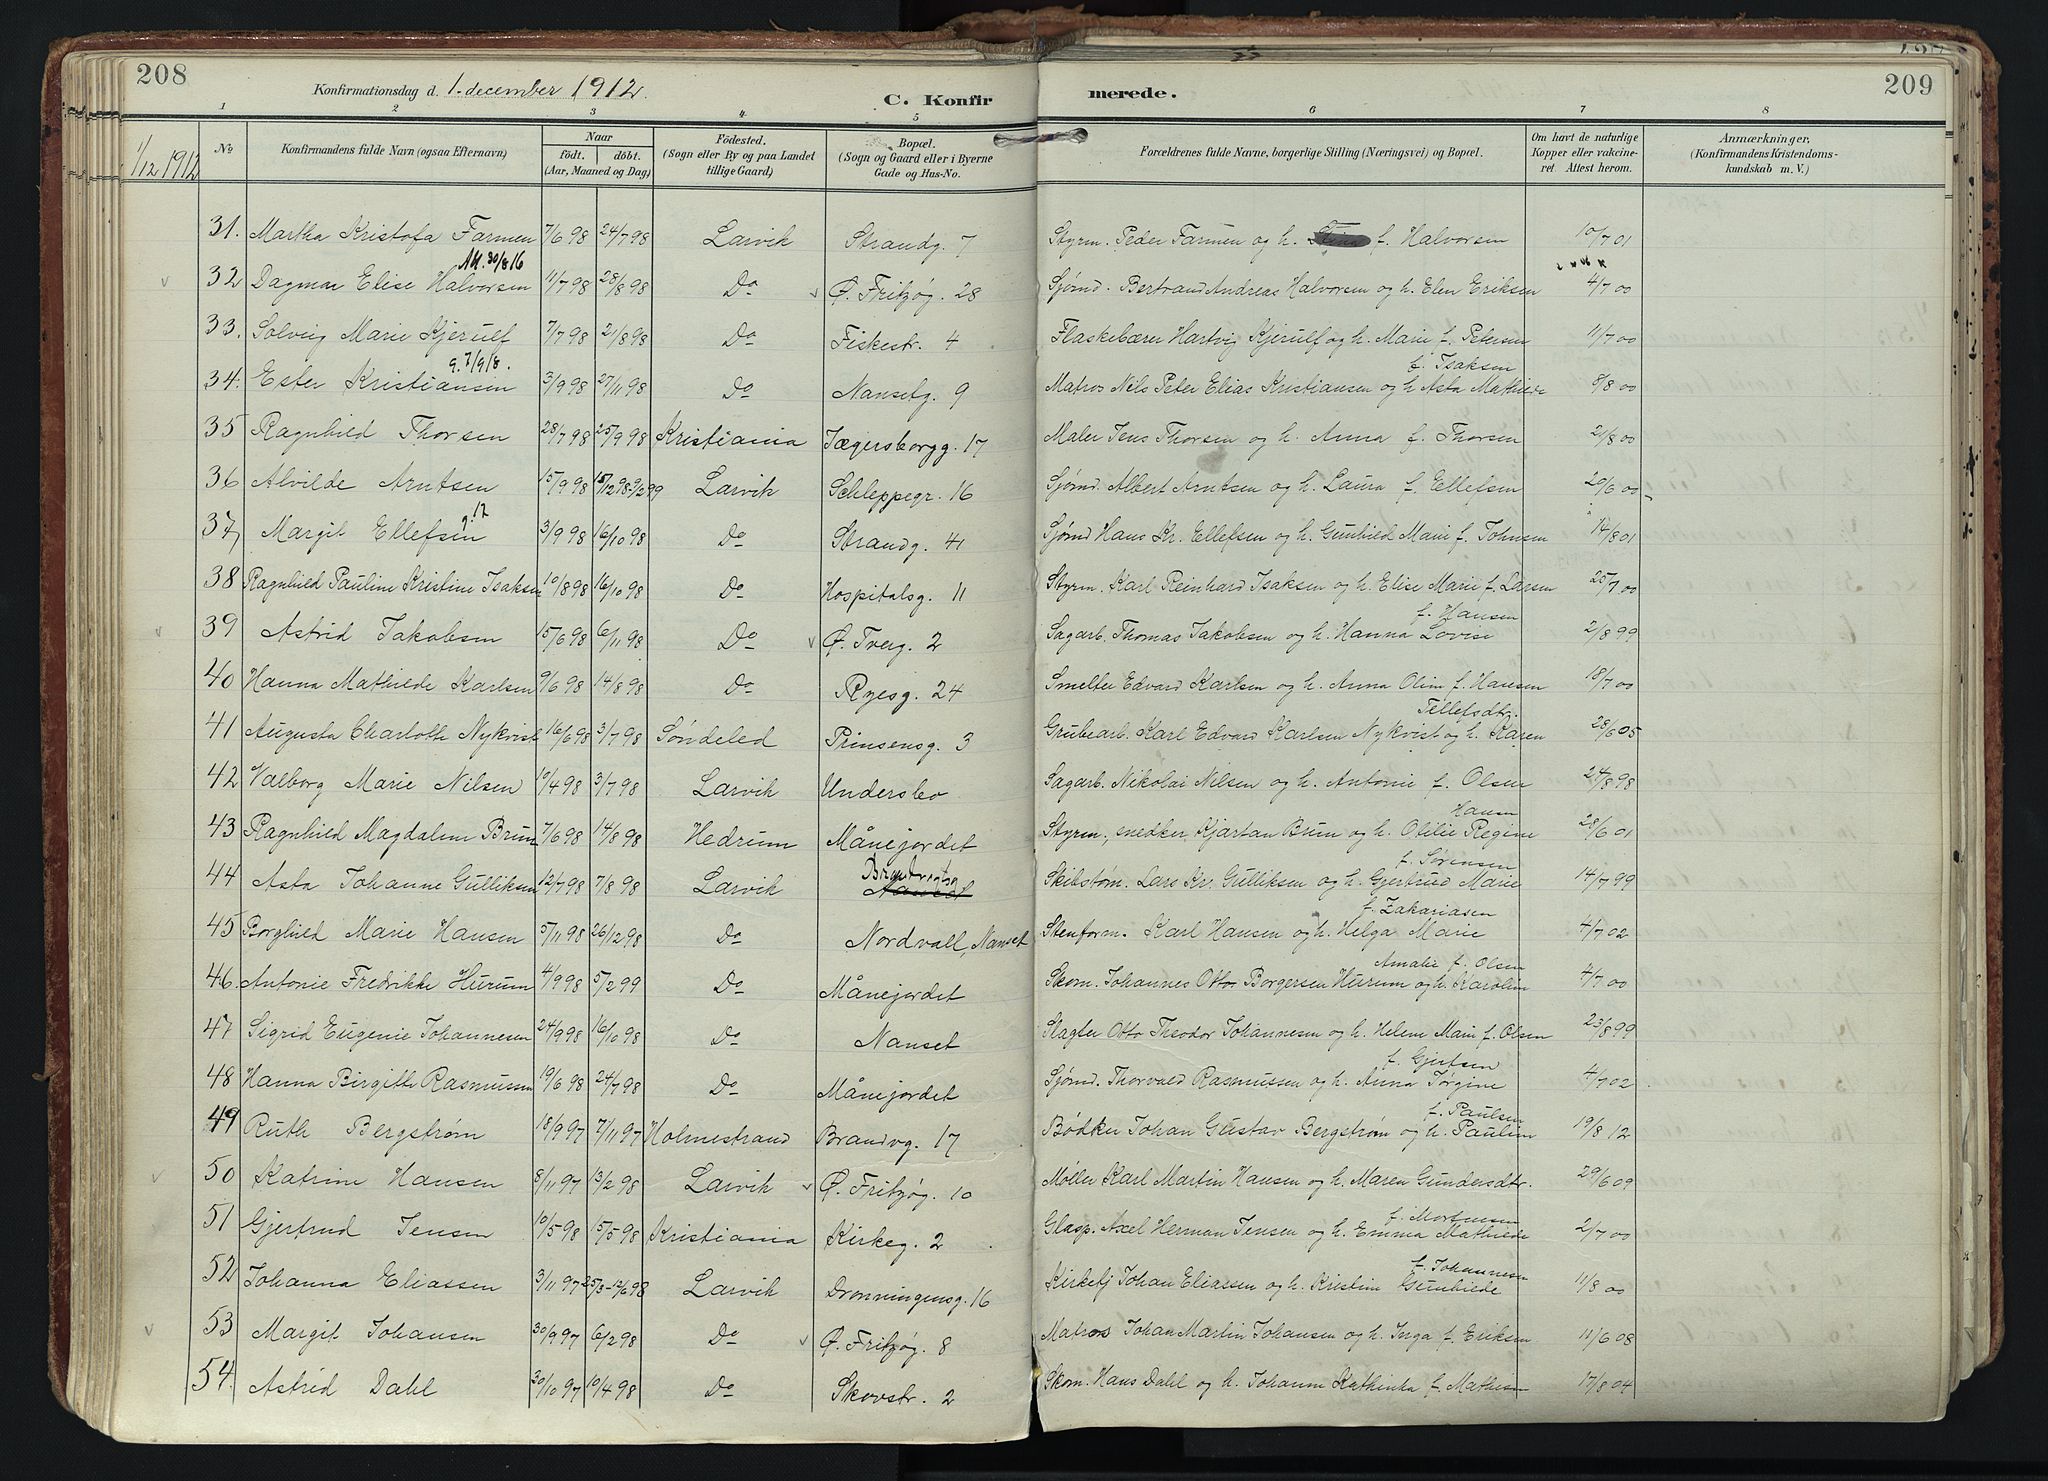 208
Konfirmationsdag d. 1. december 1912.
C. Konfirmerede.
209
1 2 3 4 5 6 7 8
1/12 1912
No
Konfirmandens fulde Navn (ogsaa Efternavn)
Naar
født. døbt.
(Aar, Maaned og Dag)
Fødested.
(Sogn eller By og paa Landet
tillige Gaard)
Bopæl.
(Sogn og Gaard eller i Byerne
Gade og Hus-No.
Forældrenes fulde Navne, borgerlige Stilling (Næringsvei) og Bopæl.
Om havt de naturlige
Kopper eller vakcine-
ret Attest herom.
Anmærkninger,
(Konfirmandens Kristendoms-
kundskab m. V.)
31. Martha Kristofa Farmen 7/6 98 24/7 98 Larvik Strandg. 7 Styrm. Peder Farmen og h. f. Halvorsen 10/7 01
Att. 30/8 16
32 Dagmar Elise Halvorsen 11/7 98 28/8 98 Do Ø. Fritzøg. 28 Sjømd. Bertrand Andreas Halvorsen og h. Elen Eriksen 4/7 00
33. Solveig Marie Kjerulf 7/7 98 21/8 98 Do Fiskestr. 4 Flaskebærer Hartvig Kjerulf og h. Marie f. Petersen 11/7 00
9. 7/9 18. f. Isaksen
34. Ester Kristiansen 3/9 98 27/11 98 Do Nansetg. 9 Matros Nils Peter Elias Kristiansen og h Asta Mathilde 8/8 00
35 Ragnhild Thorsen 28/7 98 25/9 98 Kristiania Jægersborgg. 17 Maler Jens Thorsen og h. Anna f. Thorsen 21/8 00
36 Alvilde Arntsen 15/9 98 15/12 98-5/2 99 Larvik Schleppegr. 16 Sjømd. Albert Arntsen og h. Laura f. Ellefsen 20/6 00
g. 12
37 Margit Ellefsen 3/9 98 16/10 98 Do Strandg. 41 Sjømd Hans Kr. Ellefsen og h. Gunhild Marie f. Johnsen 14/8 01
38 Ragnhild Pauline Kristine Isaksen 10/8 98 16/10 98 Do Hospitalsg. 11 Styrm. Karl Reinhard Isaksen og h. Elise Marie f. Larsen 25/7 00
f. Hansen
39 Astrid Jakobsen 15/6 98 6/11 98 Do Ø. Tverg. 2 Sagarb. Thomas Jakobsen og h. Hanna Lovise 2/8 99
40 Hanna Mathilde Karlsen 9/6 98 14/8 98 Do Ryesg. 24 Smelter Edvard Karlsen og h. Anna Oline f. Hansen 18/7 00
Tellefsdtr.
41 Augusta Charlotte Nykvist 16/6 98 3/7 98 Søndeled Prinsensg. 3 Grubearb. Karl Edvard Karlsen Nykvist og h. Karen 28/6 05
42 Valborg Marie Nilsen 10/4 98 3/7 98 Larvik Undersbo Sagarb. Nikolai Nilsen og h. Antonie f. Olsen 24/8 98
Hansen
43 Ragnhild Magdalene Brun 7/6 98 14/8 98 Hedrum Månejordet Styrm., snedker Kjartan Brun og h. Otilie Regine 28/6 01
f. Sørensen
44 Asta Johanne Gulliksen 12/7 98 7/8 98 Larvik Nanset Skibstøm. Lars Kr. Gulliksen og h. Gjertrud Marie 14/7 99
f. Zakariasen
45 Borghild Marie Hansen 5/11 98 26/12 98 Do Nordvall, Nanset Stenform. Karl Hansen og h. Helga Marie 4/7 02
Amalie f. Olsen
46. Antonie Fredrikke Hurum 4/9 98 5/2 99 Do Månejordet Skom. Johannes Otto Borgersen Hurum og h. Karoline 4/7 00
47 Sigrid Eugenie Johannesen 24/9 98 16/10 98 Do Nanset Slagter Otto Theodor Johannesen og h. Helene Marie f. Olsen 23/8 99
f. Gjertsen
48 Hanna Birgitte Rasmussen 19/6 98 24/7 98 Do Månejordet Sjømd. Thorvald Rasmussen og h. Anna Jørgine 4/7 02
f. Paulsen
49 Ruth Bergstrøm 18/9 97 7/11 97 Holmestrand Brandvg. 17 Bødker Johan Gustav Bergstrøm og h. Pauline 19/8 12
50 Katrine Hansen 8/11 97 13/2 98 Larvik Ø. Fritzøg. 10 Møller Karl Martin Hansen og h. Maren Gundersdtr. 29/6 09
f. Mortensen
51 Gjertrud Jensen 10/5 98 15/5 98 Kristiania Kirkeg. 2 Glasp. Axel Herman Jensen og h. Emma Mathilde 2/7 00
f. Johannesen
52 Johanna Eliassen 3/11 97 25/3-12/6 98 Larvik Dronningensg. 16 Kirketj Johan Eliassen og h. Kristine Gunhilde 11/8 00
53 Margit Johansen 30/9 97 6/2 98 Do Ø. Fritzøg. 8 Matros Johan Martin Johansen og h. Inga f. Eriksen 11/6 08
54. Astrid Dahl 30/10 97 10/4 98 Do Skovstr. 2 Skom. Hans Dahl og h. Johanne Kathinka f. Mathisen 17/8 04